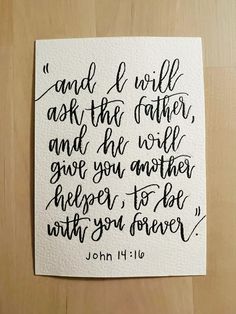 "and I will
ask the father,
and he will
give you another
helper, to be
with you forever."
John 14:16